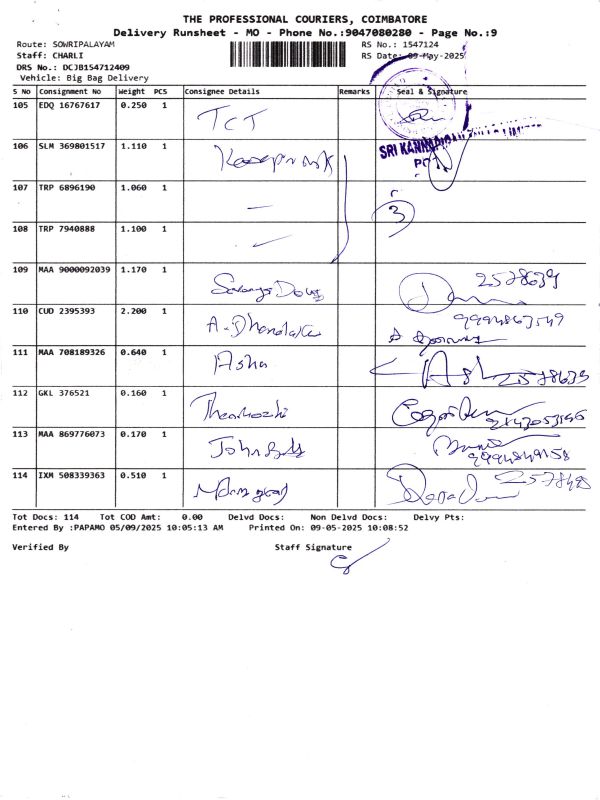 THE PROFESSIONAL COURIERS, COIMBATORE
Delivery Runsheet - MO - Phone No.:9047080280 - Page No.:9
Route: SOWRIPALAYAM
RS No.: 1547124
Staff: CHARLI
RS Date: 09-May-2025
DRS No.: DCJB154712409
Vehicle: Big Bag Delivery
S No Consignment No Weight PCS Consignee Details Remarks Seal & Signature
105 EDQ 16767617 0.250 1 TCT
106 SLM 369801517 1.110 1
SRI KANNAPIRAN MILLS LIMITED
107 TRP 6896190 1.060 1 — 3
108 TRP 7940888 1.100 1
109 MAA 9000092039 1.170 1 2578639
110 CUD 2395393 2.200 1 A. Dhanalakshmi 9994863549
111 MAA 708189326 0.640 1 Asha Ash 2578639
112 GKL 376521 0.160 1
113 MAA 869776073 0.170 1 9994849158
114 IXM 508339363 0.510 1
Tot Docs: 114 Tot COD Amt: 0.00 Delvd Docs: Non Delvd Docs: Delvy Pts:
Entered By :PAPAMO 05/09/2025 10:05:13 AM Printed On: 09-05-2025 10:08:52
Verified By Staff Signature